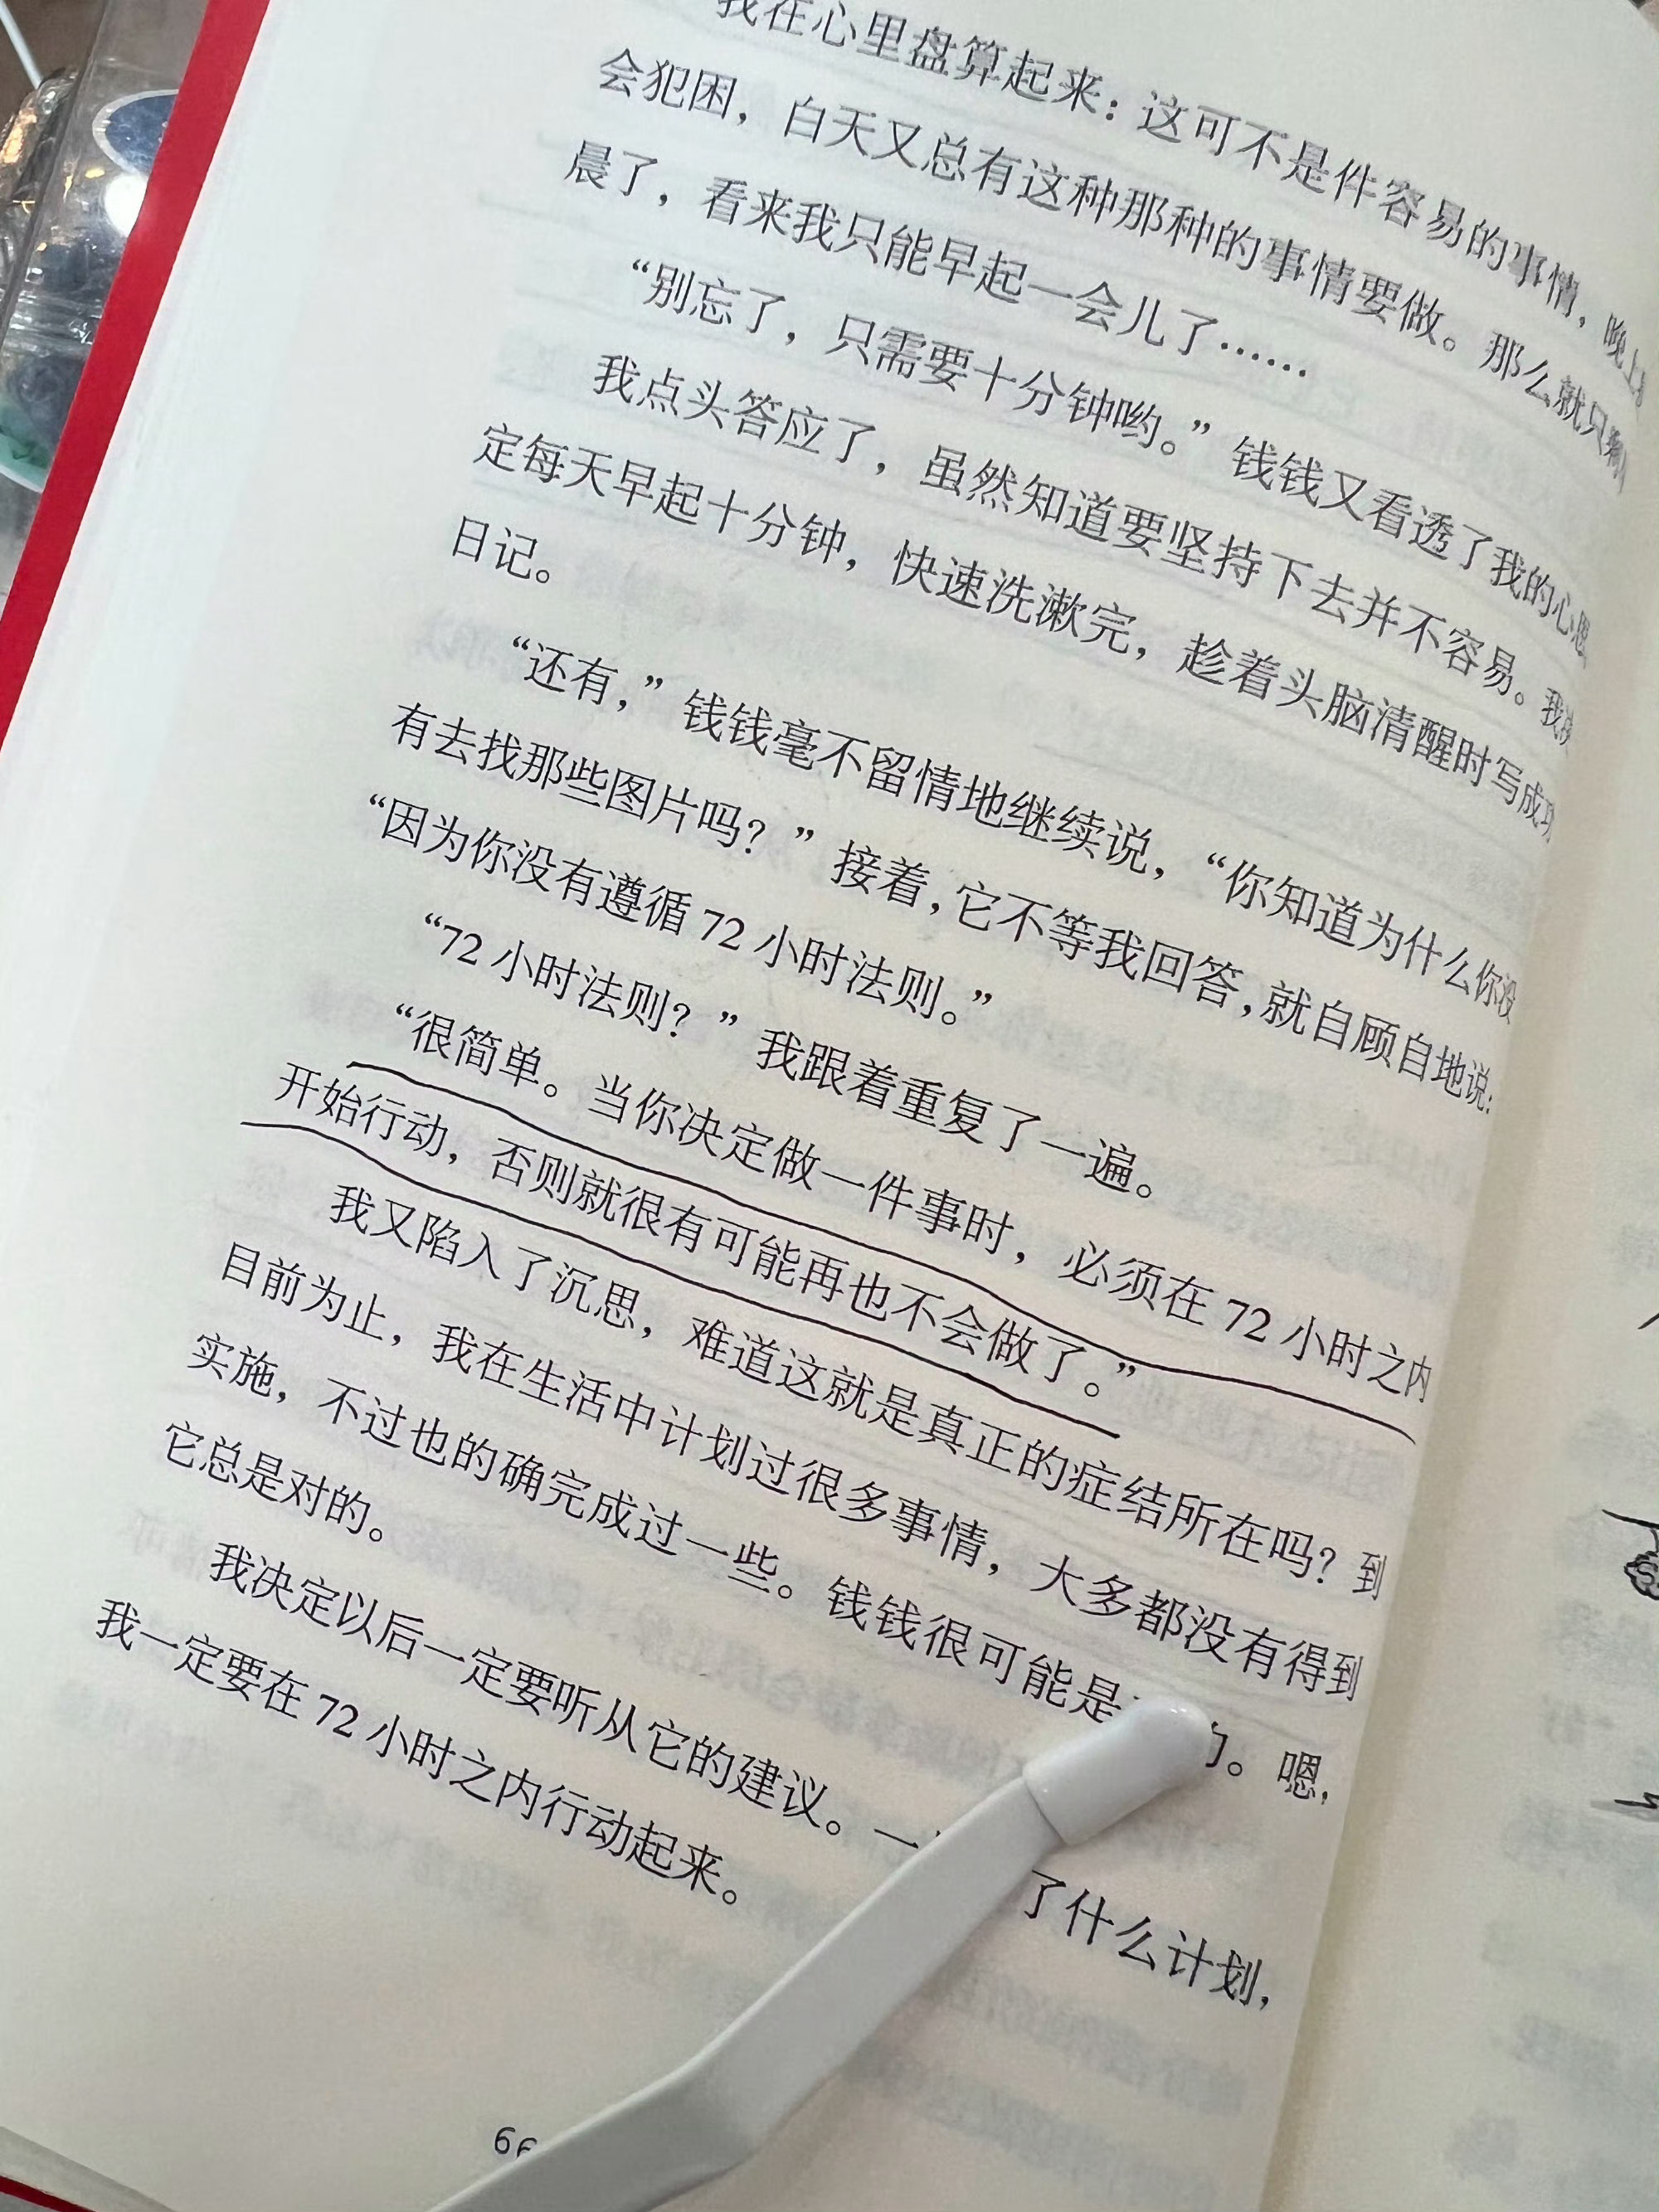 我在心里盘算起来：这可不是件容易的事情，晚上
会犯困，白天又总有这种那种的事情要做。那么就只剩
晨了，看来我只能早起一会儿了……
“别忘了，只需要十分钟哟。”钱钱又看透了我的心思
我点头答应了，虽然知道要坚持下去并不容易。我决
定每天早起十分钟，快速洗漱完，趁着头脑清醒时写成功
日记。
“还有，”钱钱毫不留情地继续说，“你知道为什么你没
有去找那些图片吗？”接着，它不等我回答，就自顾自地说：
“因为你没有遵循 72 小时法则。”
“72 小时法则？”我跟着重复了一遍。
“很简单。当你决定做一件事时，必须在 72 小时之内
开始行动，否则就很有可能再也不会做了。”
我又陷入了沉思，难道这就是真正的症结所在吗？到
目前为止，我在生活中计划过很多事情，大多都没有得到
实施，不过也的确完成过一些。钱钱很可能是 的。嗯，
它总是对的。
我决定以后一定要听从它的建议。一 了什么计划，
我一定要在 72 小时之内行动起来。
66